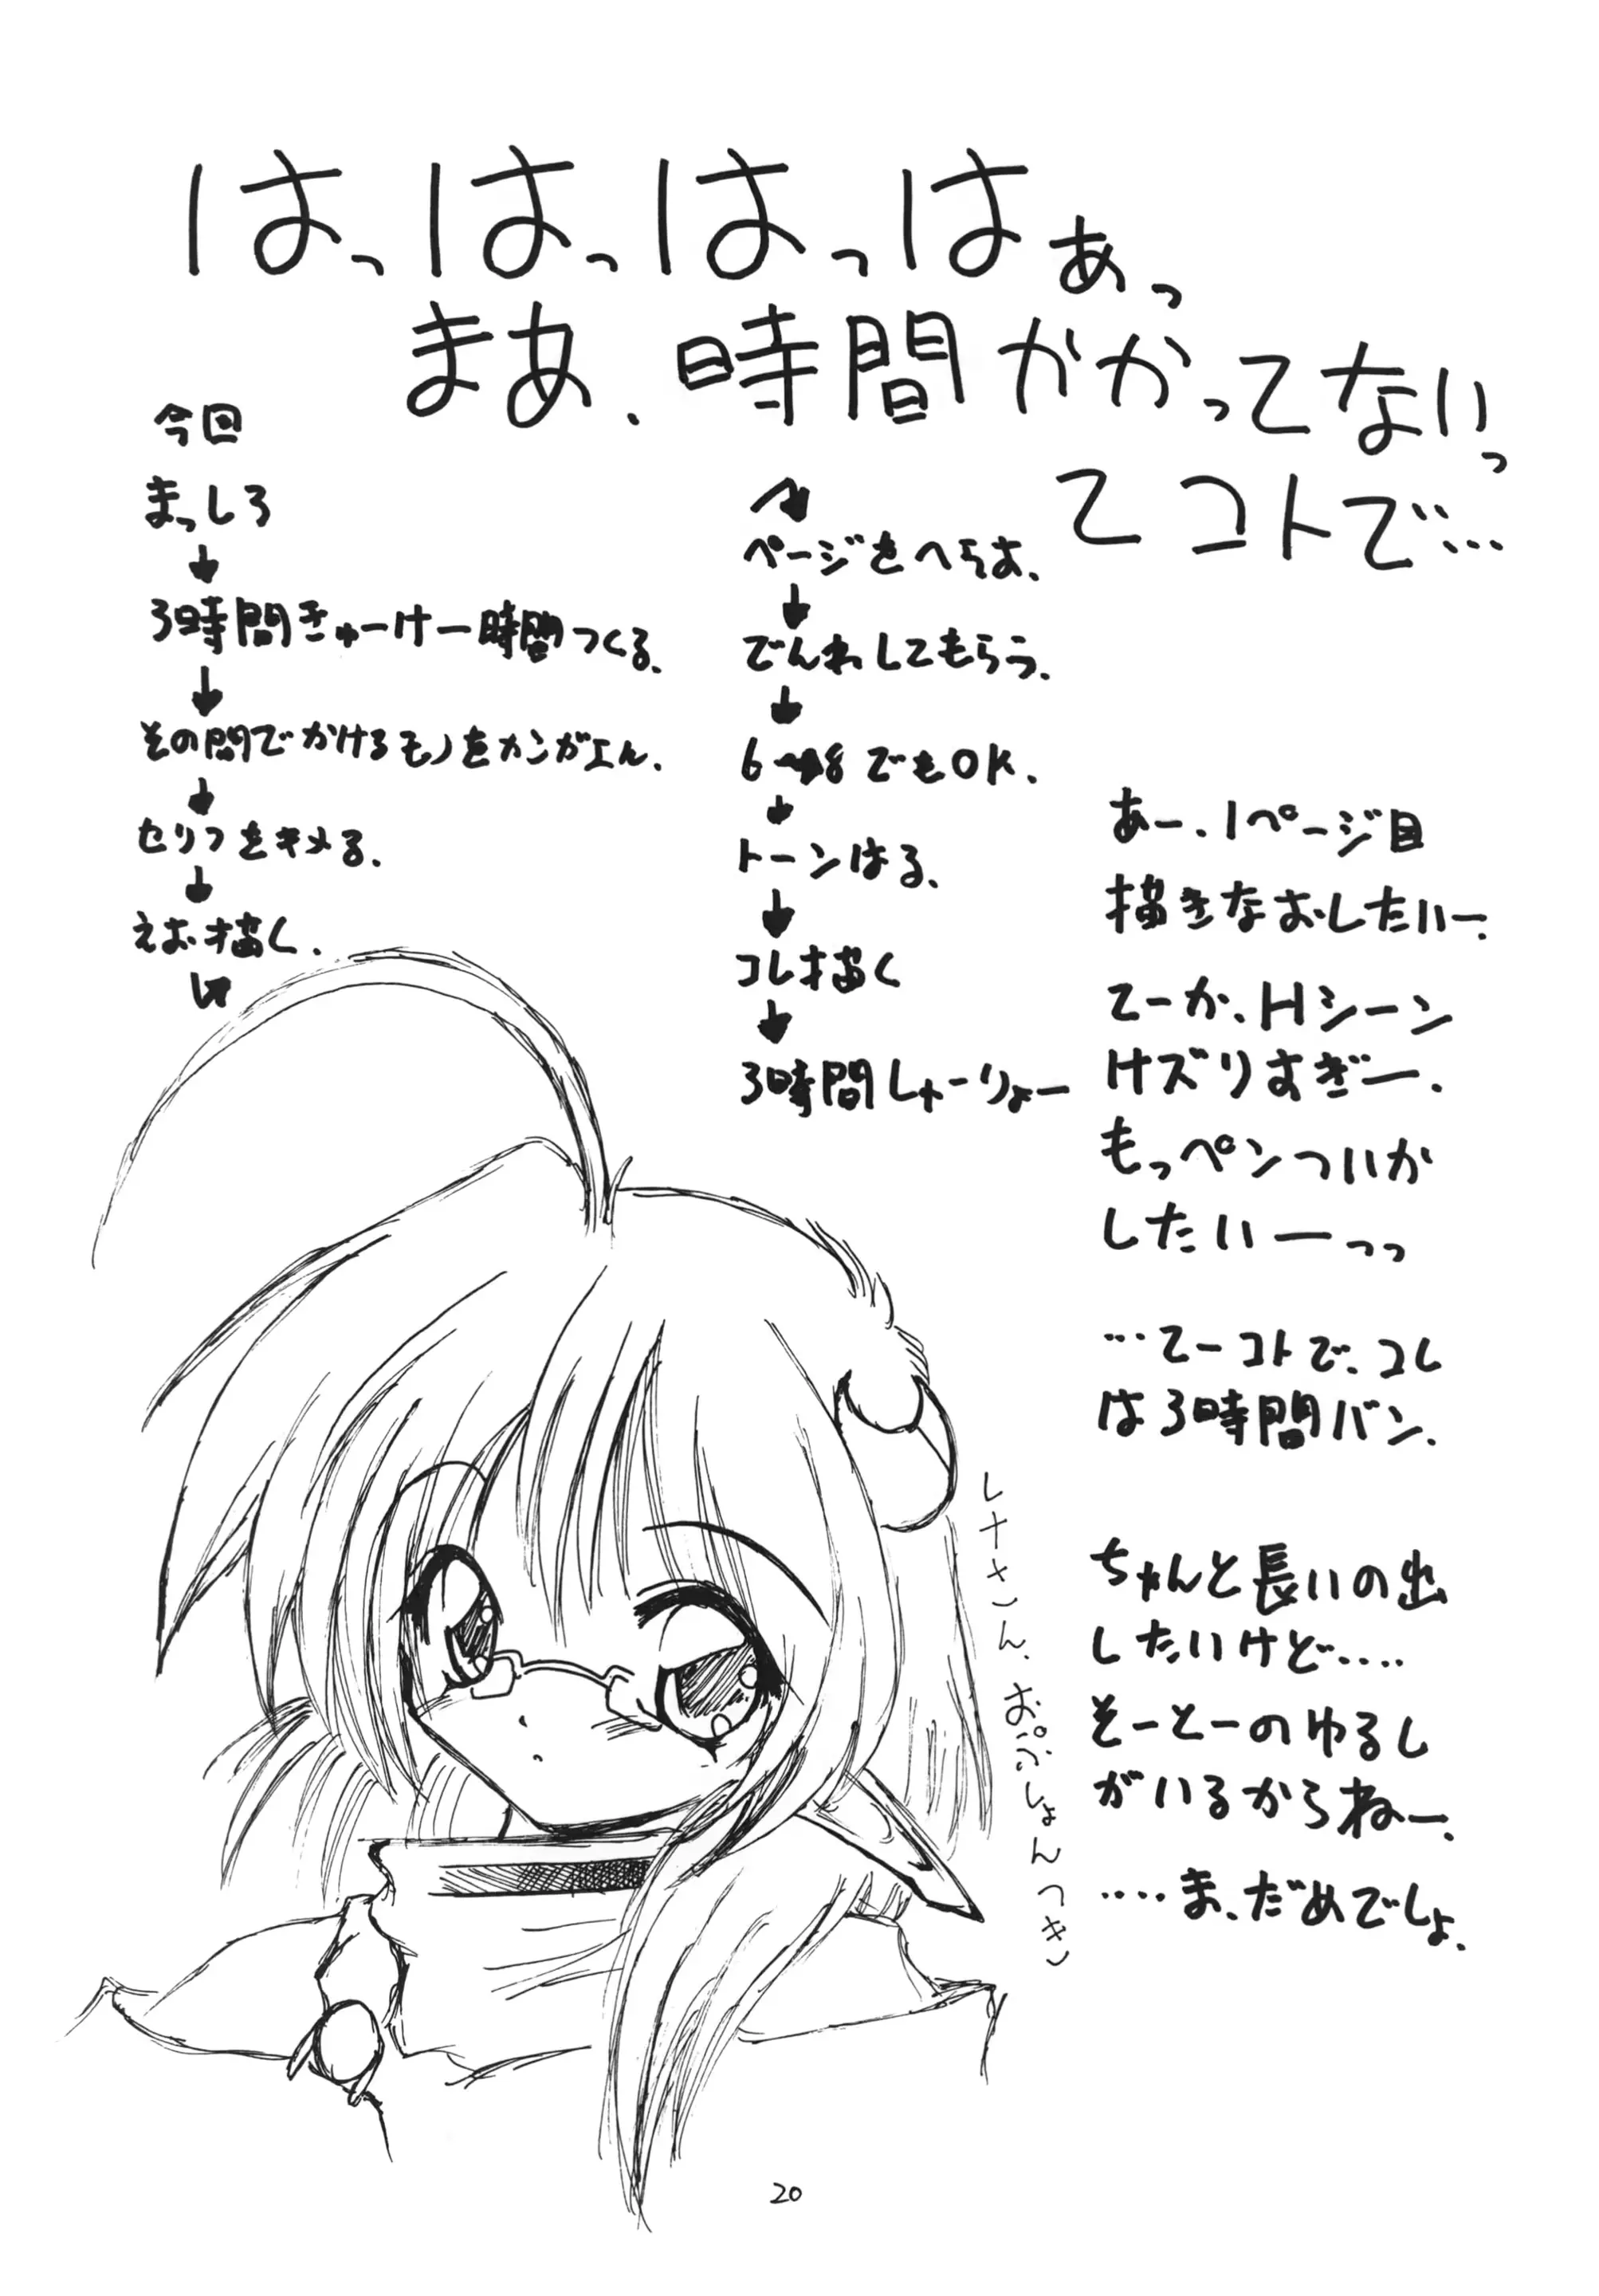 はっはっはっはぁっ
まあ.時間かかってないっ
てコトで…
今回
まっしろ
↓
3時間きゅーけー時間つくる.
↓
その間でかけるモノをカンガエん.
↓
セリフをキメる.
↓
えお描く.
ページをへらす.
↓
でんわしてもらう.
↓
6→8でもOK.
↓
トーンはる.
↓
コレ描く
↓
3時間しゅーりょー
あー、1ページ目
描きなおしたいー.
てーか、Hシーン
けズりすぎー.
もっペンついか
したいーっっ
…てーコトで、コレ
は3時間バン.
ちゃんと長いの出
したいけど‥‥
そーとーのゆるし
がいるからねー.
‥‥ま、だめでしょ.
レナさん、おぷしょんつき
20